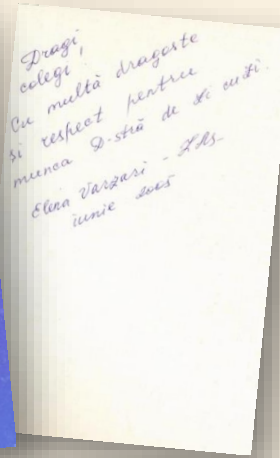 Dragi
colegi,
Cu multă dragoste
și respect pentru
munca D-stră de zi cu zi.
Elena Varzari -
iunie 2005